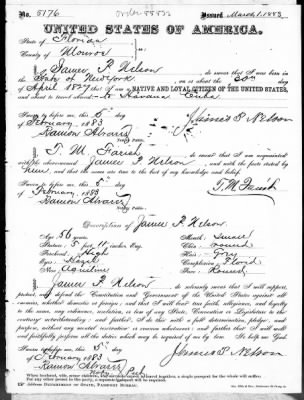 No. 5176 Issued March 1. 1883
UNITED STATES OF AMERICA.
State of Florida
County of Monroe
I, James P. Nelson, do swear that I was born in
the State of New York, on or about the 20th day of
April 1827; that I am a NATIVE AND LOYAL CITIZEN OF THE UNITED STATES,
and about to travel abroad to Havana Cuba
Sworn to before me, this 5th day
of February, 1883
Ramon Alvarez
Notary Public.
James P. Nelson
I, T. M. Farish, do swear that I am acquainted
with the above-named James P. Nelson, and with the facts stated by
him, and that the same are true to the best of my knowledge and belief.
Sworn to before me, this 5th day
of February, 1883
Ramon Alvarez
Notary Public.
T. M. Farish
Description of James P. Nelson
Age: 56 years. Mouth: small
Stature: 5 feet, 11 inches, Eng. Chin: round
Forehead: High Hair: Gray
Eyes: Hazel Complexion: Florid
Nose: Aquiline Face: Round
I, James P. Nelson, do solemnly swear that I will support,
protect, and defend the Constitution and Government of the United States against all
enemies, whether domestic or foreign; and that I will bear true faith, allegiance, and loyalty
to the same, any ordinance, resolution, or law of any State, Convention or Legislature to the
contrary notwithstanding: and further, that I do this with a full determination, pledge, and
purpose, without any mental reservation or evasion whatsoever: and further, that I will well
and faithfully perform all the duties which may be required of me by law. So help me God.
Sworn to before me, this 5th day
of February, 1883
Ramon Alvarez
James P. Nelson